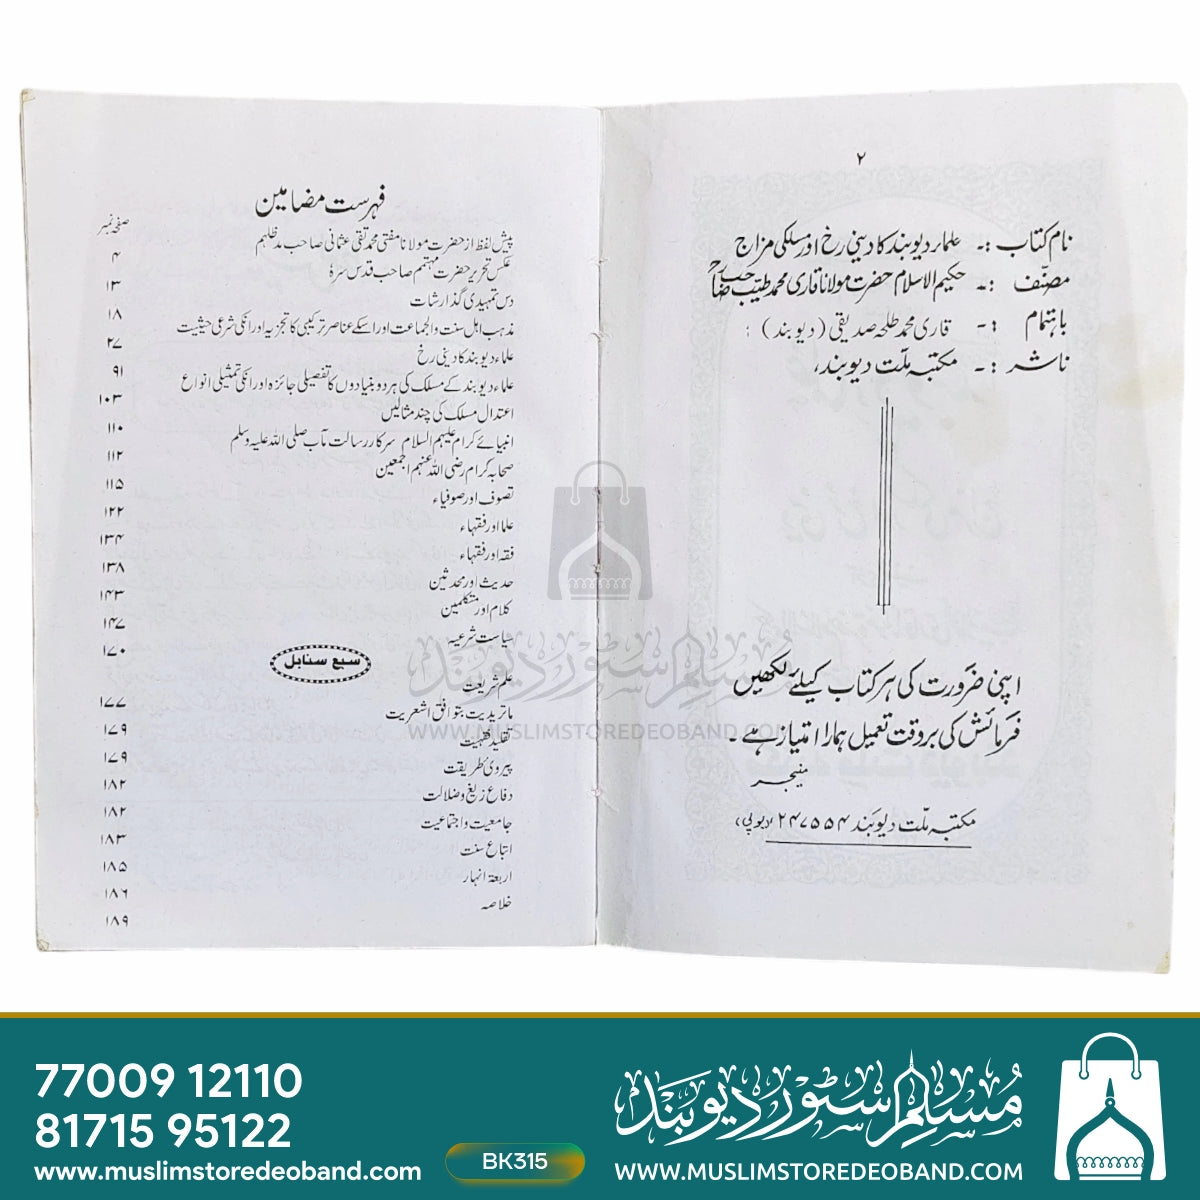 ۲
نام کتاب :۔ علماء دیوبند کا دینی رخ اور مسلکی مزاج
مصنّف :۔ حکیم الاسلام حضرت مولانا قاری محمد طیّب صاحبؒ
باہتمام :۔ قاری محمد طلحہ صدیقی (دیوبند) :
ناشر :۔ مکتبہ ملّت دیوبند،
اپنی ضرورت کی ہر کتاب کیلئے لکھیں
فرمائش کی بروقت تعمیل ہمارا امتیاز ہے۔
منیجر
مکتبہ ملّت دیوبند ۲۴۷۵۵۴ (یوپی)
فہرست مضامین
صفحہ نمبر
پیش لفظ از حضرت مولانا مفتی محمد تقی عثمانی صاحب مدظلہم ۴
عکس تحریر حضرت مہتمم صاحب قدس سرہٗ ۱۳
دس تمہیدی گذارشات ۱۸
مذہب اہل سنت والجماعت اور اسکے عناصر ترکیبی کا تجزیہ اور انکی شرعی حیثیت ۲۷
علماء دیوبند کا دینی رخ ۹۱
علماء دیوبند کے مسلک کی ہر دو بنیادوں کا تفصیلی جائزہ اور انکی تمثیلی انواع ۱۰۳
اعتدال مسلک کی چند مثالیں ۱۱۰
انبیائے کرام علیہم السلام سرکار رسالت مآب صلی اللہ علیہ وسلم ۱۱۲
صحابہ کرام رضی اللہ عنہم اجمعین ۱۱۵
تصوف اور صوفیاء ۱۲۲
علما اور فقہاء ۱۳۴
فقہ اور فقہاء ۱۳۸
حدیث اور محدثین ۱۴۳
کلام اور متکلمین ۱۴۷
سیاست شرعیہ ۱۷۰
سبع سنابل
علم شریعت ۱۷۷
ماتریدیت بتوافق اشعریت ۱۷۹
تقلید فقہیت ۱۷۹
پیروئ طریقت ۱۸۲
دفاع زیغ و ضلالت ۱۸۲
جامعیت و اجتماعیت ۱۸۳
اتباع سنت ۱۸۵
اربعۃ انہار ۱۸۶
خلاصہ ۱۸۹
مسلم سٹور دیوبند
WWW.MUSLIMSTOREDEOBAND.COM
77009 12110
81715 95122
www.muslimstoredeoband.com
BK315
مسلم سٹور دیوبند
WWW.MUSLIMSTOREDEOBAND.COM